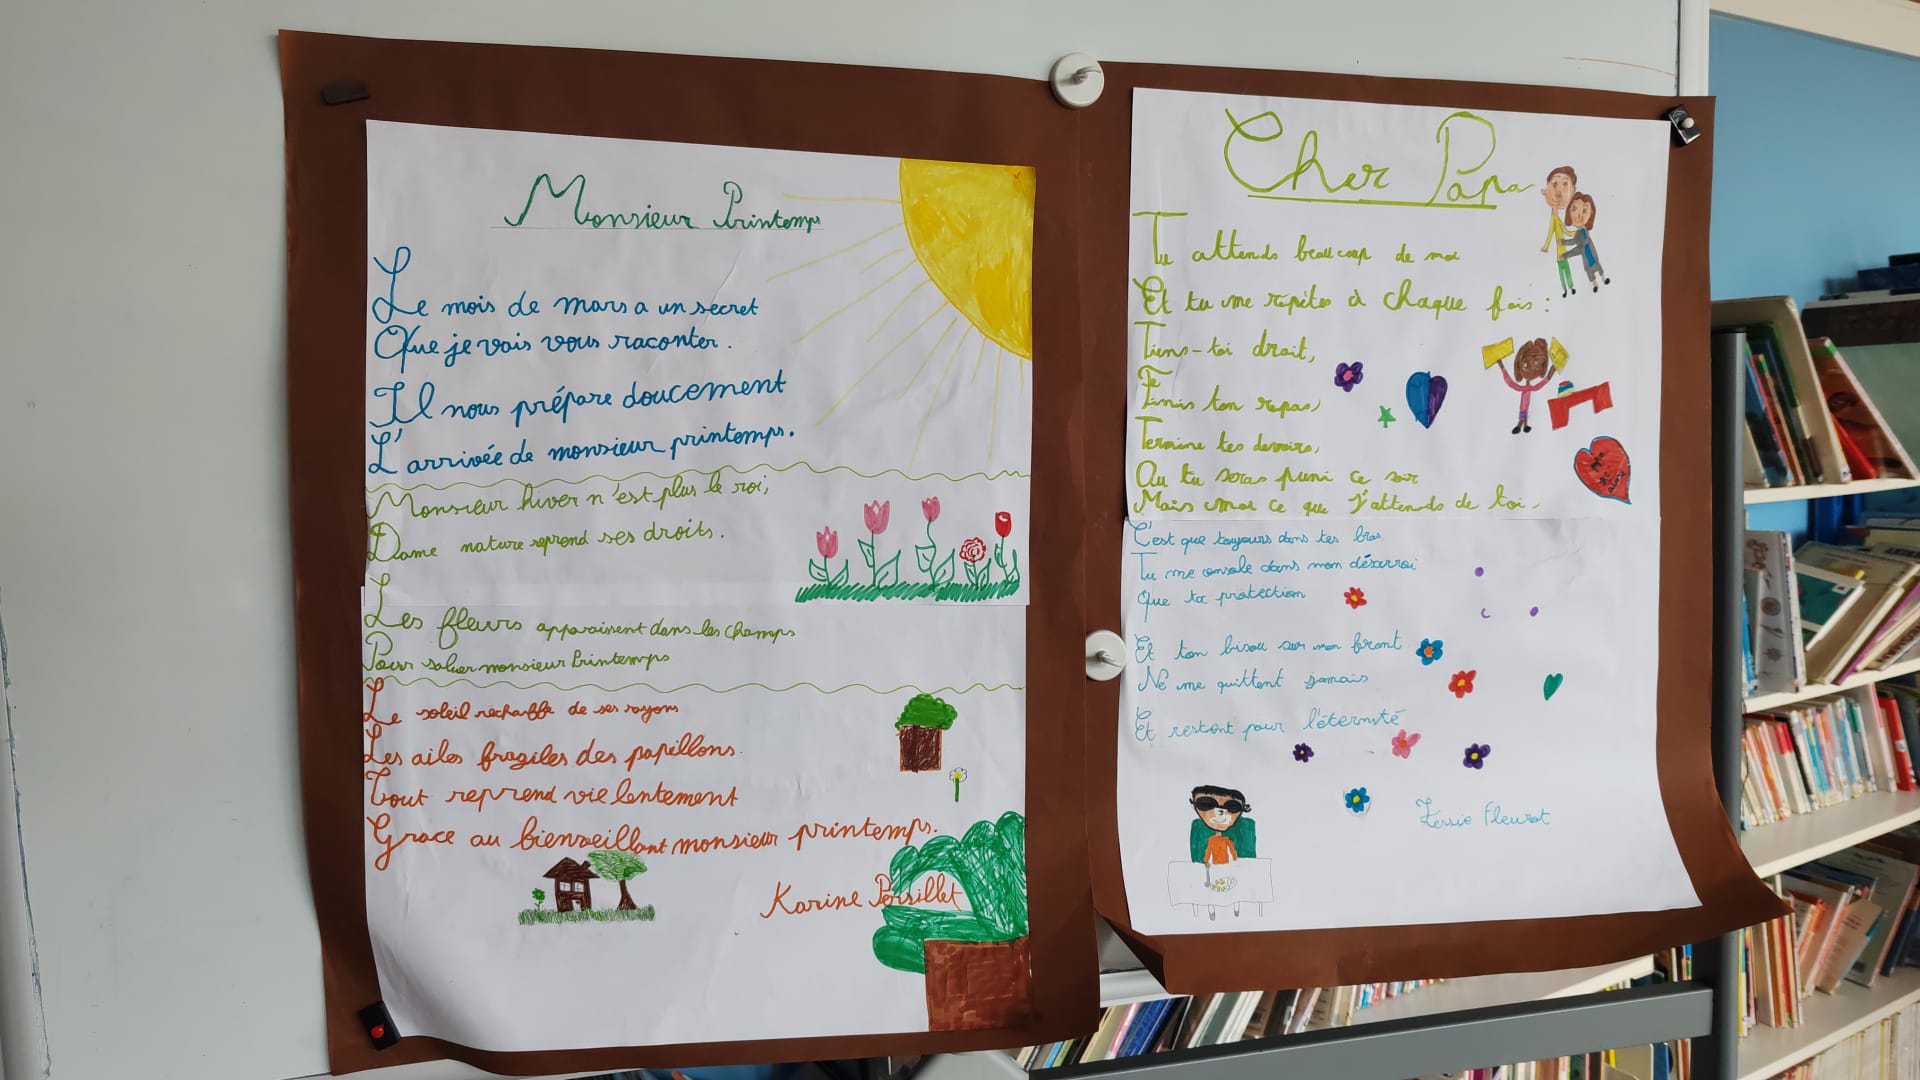 Monsieur Printemps
Le mois de mars a un secret
Que je vais vous raconter.
Il nous prépare doucement
L'arrivée de monsieur printemps.
Monsieur hiver n'est plus le roi,
Dame nature reprend ses droits.
Les fleurs apparaissent dans les champs
Pour saluer monsieur Printemps
Le soleil rechauffe de ses rayons
Les ailes fragiles des papillons.
Tout reprend vie lentement
Grace au bienveillant monsieur printemps.
Karine Persillet
Cher Papa
Tu attends beaucoup de moi
Et tu me répètes à chaque fois :
Tiens-toi droit,
Finis ton repas,
Termine tes devoirs,
Ou tu seras puni ce soir
Mais moi ce que j'attends de toi,
C'est que toujours dans tes bras
Tu me console dans mon désarroi
Que ta protection
Et ton bisou sur mon front
Ne me quittent jamais
Et restent pour l'éternité
Fleurot